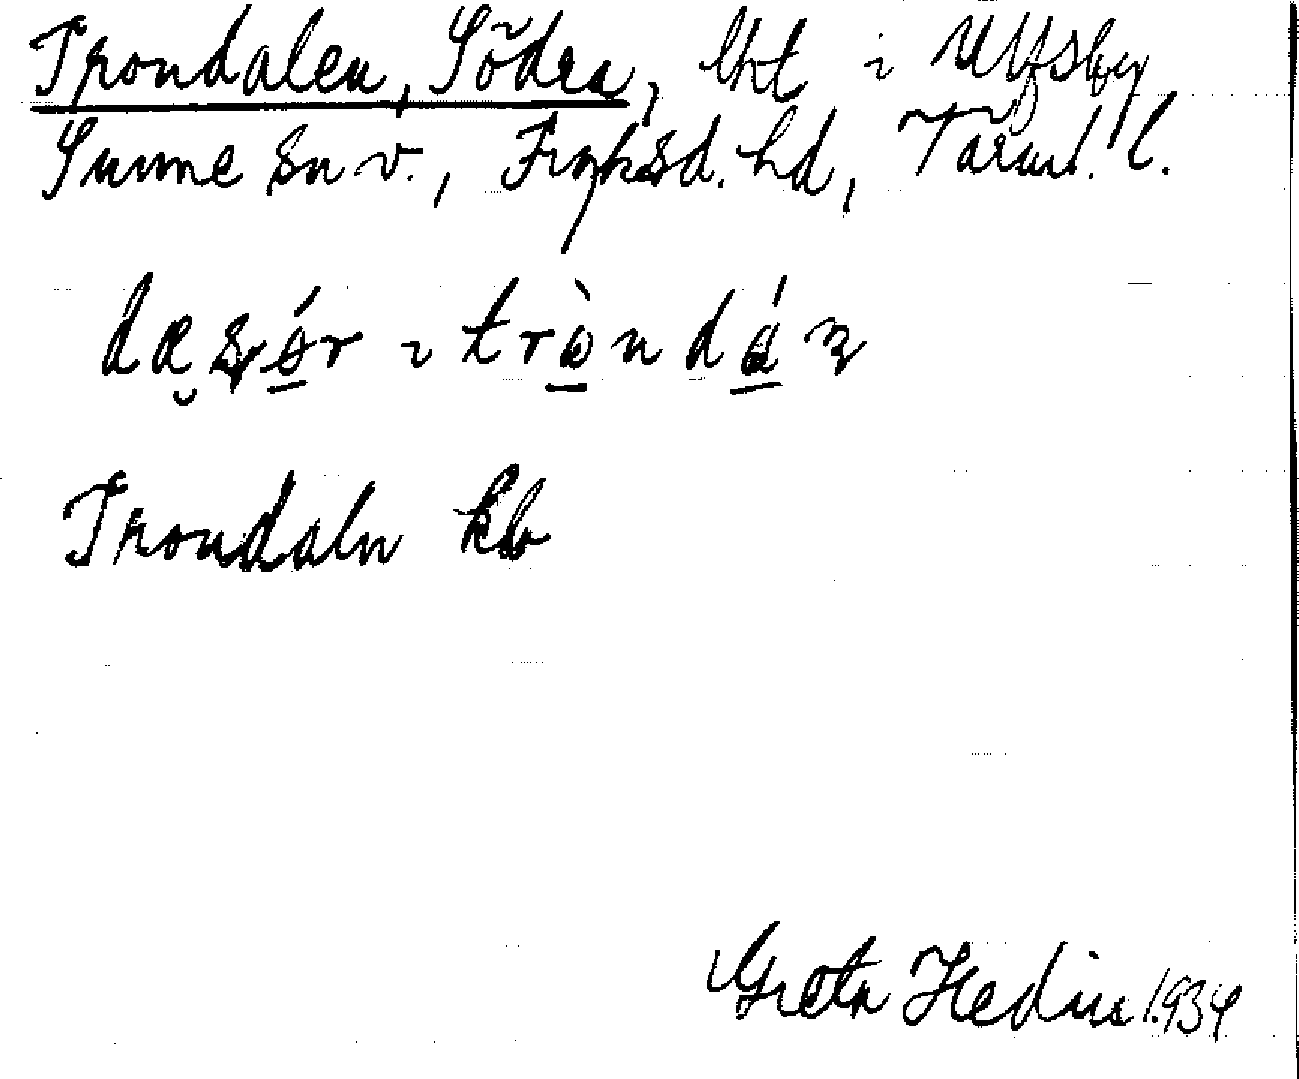 Trondalen, Södra, lht i Ulfsby
Sunne sn v., Fryksd. hd, Värml. l.
Trondaln kb
Greta Hedin 1934